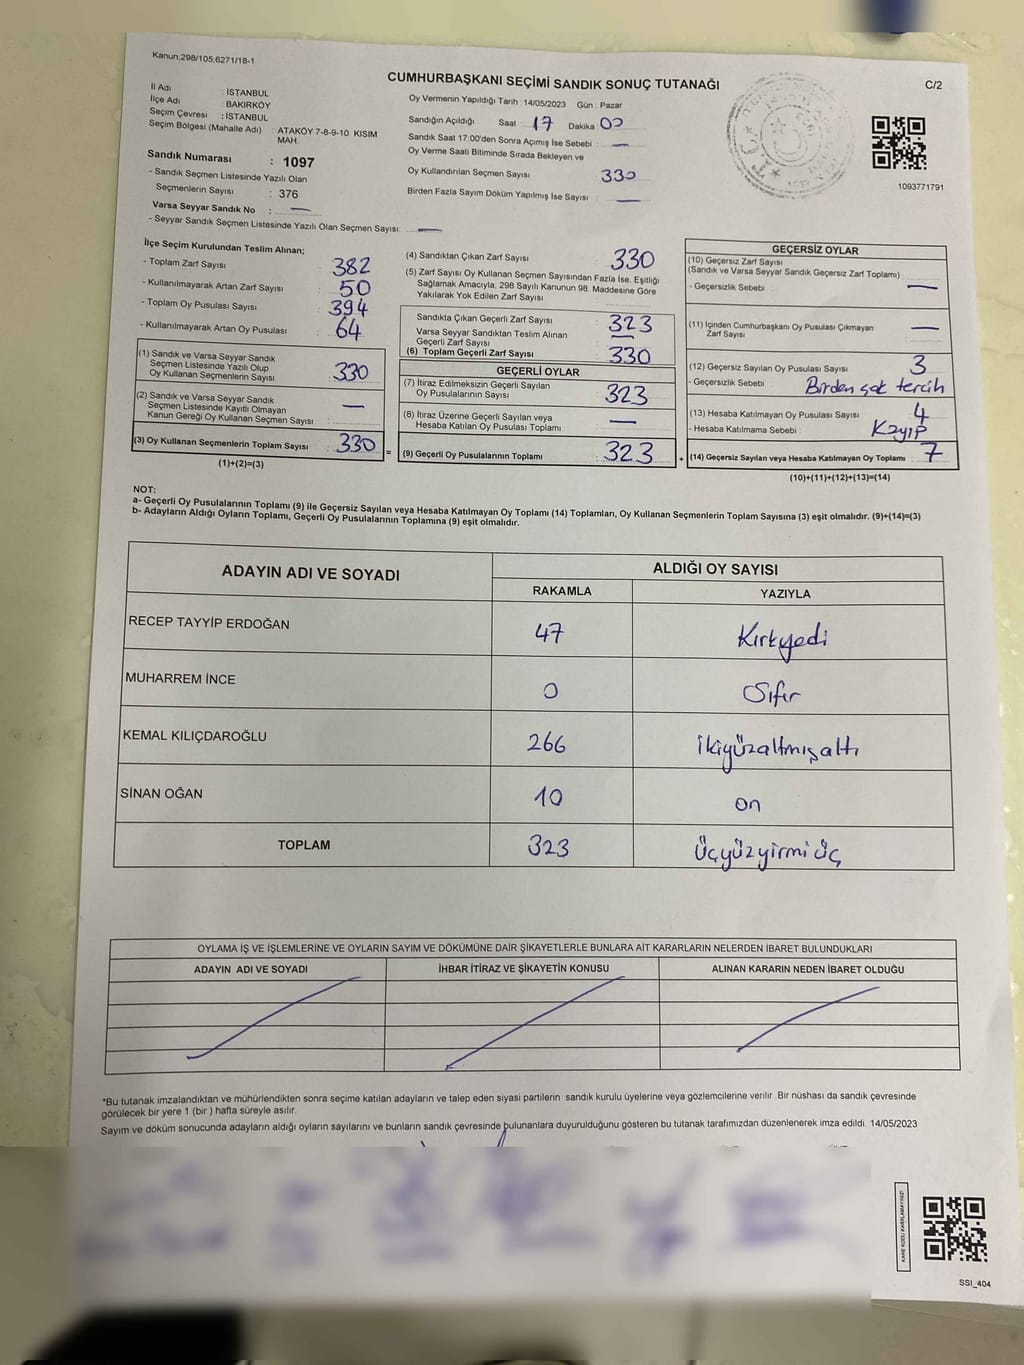 Kanun,298/105,6271/18-1
CUMHURBAŞKANI SEÇİMİ SANDIK SONUÇ TUTANAĞI
C/2
İl Adı : İSTANBUL
İlçe Adı : BAKIRKÖY
Seçim Çevresi : İSTANBUL
Seçim Bölgesi (Mahalle Adı) : ATAKÖY 7-8-9-10 KISIM
MAH.
Sandık Numarası : 1097
- Sandık Seçmen Listesinde Yazılı Olan
Seçmenlerin Sayısı : 376
Varsa Seyyar Sandık No : —
- Seyyar Sandık Seçmen Listesinde Yazılı Olan Seçmen Sayısı: —
Oy Vermenin Yapıldığı Tarih : 14/05/2023 Gün : Pazar
Sandığın Açıldığı Saat : 17 Dakika : 00
Sandık Saat 17:00'den Sonra Açımış İse Sebebi : —
Oy Verme Saati Bitiminde Sırada Bekleyen ve
Oy Kullandırılan Seçmen Sayısı : 330
Birden Fazla Sayım Döküm Yapılmış İse Sayısı : —
1093771791
İlçe Seçim Kurulundan Teslim Alınan;
- Toplam Zarf Sayısı : 382
- Kullanılmayarak Artan Zarf Sayısı : 50
- Toplam Oy Pusulası Sayısı : 394
- Kullanılmayarak Artan Oy Pusulası : 64
(1) Sandık ve Varsa Seyyar Sandık
Seçmen Listesinde Yazılı Olup
Oy Kullanan Seçmenlerin Sayısı : 330
(2) Sandık ve Varsa Seyyar Sandık
Seçmen Listesinde Kayıtlı Olmayan
Kanun Gereği Oy Kullanan Seçmen Sayısı : —
(3) Oy Kullanan Seçmenlerin Toplam Sayısı : 330
(1)+(2)=(3)
=
(4) Sandıktan Çıkan Zarf Sayısı : 330
(5) Zarf Sayısı Oy Kullanan Seçmen Sayısından Fazla İse, Eşitliği
Sağlamak Amacıyla; 298 Sayılı Kanunun 98. Maddesine Göre
Yakılarak Yok Edilen Zarf Sayısı :
Sandıkta Çıkan Geçerli Zarf Sayısı : 323
Varsa Seyyar Sandıktan Teslim Alınan
Geçerli Zarf Sayısı : —
(6) Toplam Geçerli Zarf Sayısı : 330
GEÇERLİ OYLAR
(7) İtiraz Edilmeksizin Geçerli Sayılan
Oy Pusulalarının Sayısı : 323
(8) İtiraz Üzerine Geçerli Sayılan veya
Hesaba Katılan Oy Pusulası Toplamı : —
(9) Geçerli Oy Pusulalarının Toplamı : 323
+
GEÇERSİZ OYLAR
(10) Geçersiz Zarf Sayısı
(Sandık ve Varsa Seyyar Sandık Geçersiz Zarf Toplamı) :
- Geçersizlik Sebebi : —
(11) İçinden Cumhurbaşkanı Oy Pusulası Çıkmayan
Zarf Sayısı : —
(12) Geçersiz Sayılan Oy Pusulası Sayısı : 3
- Geçersizlik Sebebi : Birden çok tercih
(13) Hesaba Katılmayan Oy Pusulası Sayısı : 4
- Hesaba Katılmama Sebebi : Kayıp
(14) Geçersiz Sayılan veya Hesaba Katılmayan Oy Toplamı : 7
(10)+(11)+(12)+(13)=(14)
NOT:
a- Geçerli Oy Pusulalarının Toplamı (9) ile Geçersiz Sayılan veya Hesaba Katılmayan Oy Toplamı (14) Toplamları, Oy Kullanan Seçmenlerin Toplam Sayısına (3) eşit olmalıdır. (9)+(14)=(3)
b- Adayların Aldığı Oyların Toplamı, Geçerli Oy Pusulalarının Toplamına (9) eşit olmalıdır.
ADAYIN ADI VE SOYADI ALDIĞI OY SAYISI
RAKAMLA YAZIYLA
RECEP TAYYİP ERDOĞAN 47 Kırkyedi
MUHARREM İNCE 0 Sıfır
KEMAL KILIÇDAROĞLU 266 ikiyüzaltmışaltı
SİNAN OĞAN 10 on
TOPLAM 323 Üçyüzyirmi üç
OYLAMA İŞ VE İŞLEMLERİNE VE OYLARIN SAYIM VE DÖKÜMÜNE DAİR ŞİKAYETLERLE BUNLARA AİT KARARLARIN NELERDEN İBARET BULUNDUKLARI
ADAYIN ADI VE SOYADI İHBAR İTİRAZ VE ŞİKAYETİN KONUSU ALINAN KARARIN NEDEN İBARET OLDUĞU
*Bu tutanak imzalandıktan ve mühürlendikten sonra seçime katılan adayların ve talep eden siyasi partilerin sandık kurulu üyelerine veya gözlemcilerine verilir. Bir nüshası da sandık çevresinde
görülecek bir yere 1 (bir ) hafta süreyle asılır.
Sayım ve döküm sonucunda adayların aldığı oyların sayılarını ve bunların sandık çevresinde bulunanlara duyurulduğunu gösteren bu tutanak tarafımızdan düzenlenerek imza edildi. 14/05/2023
KARE KODU KARALAMAYINIZ!
SSI_404